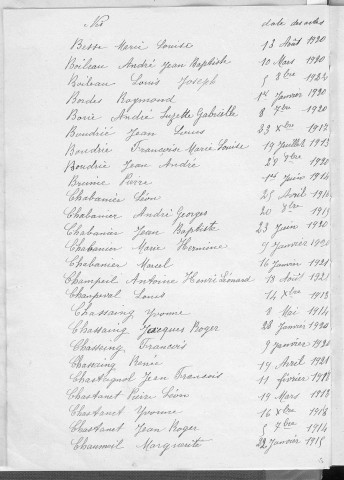 Nés date des actes
Besse Marie Louise 13 Août 1920
Boileau André Jean Baptiste 10 Mars 1920
Boileau Louis Joseph 5 8bre 1924
Bordes Raymond 1er Janvier 1920
Borie André Suzette Gabrielle 8 7bre 1920
Boudrie Jean Louis 23 Xbre 1917
Boudrie Françoise Marie Louise 19 Juillet 1913
Boudrie Jean André 28 1920
Brume Pierre 1er Juin 1914
Chabanier Léon 25 Avril 1914
Chabanier André Georges 20 8bre 1919
Chabanier Jean Baptiste 23 Juin 1920
Chabanier Marie Hermine 9 Janvier 1920
Chabanier Marcel 16 Janvier 1921
Champeil Antoine Henri Léonard 18 Août 1921
Champeval Louis 14 Xbre 1918
Chassaing Yvonne 8 Mai 1914
Chassaing Jacques Roger 28 Janvier 1920
Chassaing François 9 Janvier 1920
Chassaing Renée 14 Avril 1921
Chastagnol Jean François 11 février 1918
Chastanet Pierre Léon 19 Mars 1913
Chastanet Yvonne 16 Xbre 1918
Chastanet Jean Roger 5 7bre 1914
Chaumeil Marguerite 22 Janvier 1915